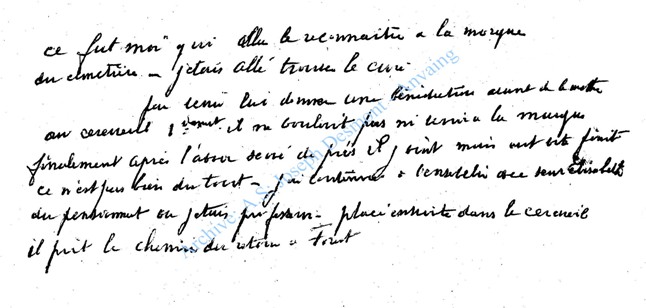 ce fut moi qui allu le reconnaitre a la morgue
du cimetière – j'etais allé trouver le curé
pour venir lui donner une bénédiction avant de le mettre
au cercueil il ne voulait pas ni venir a la morgue
finalement après l'avoir serré de près il joint mais vite finit
ce n'est pas bien du tout – j'ai continué a l'ensevelir avec soeur Elisabeth
du pensionnat ou j'etais professeur – placé ensuite dans le cercueil
il prit le chemin du retour a Forest
Archive A.S. Joseph Desiment